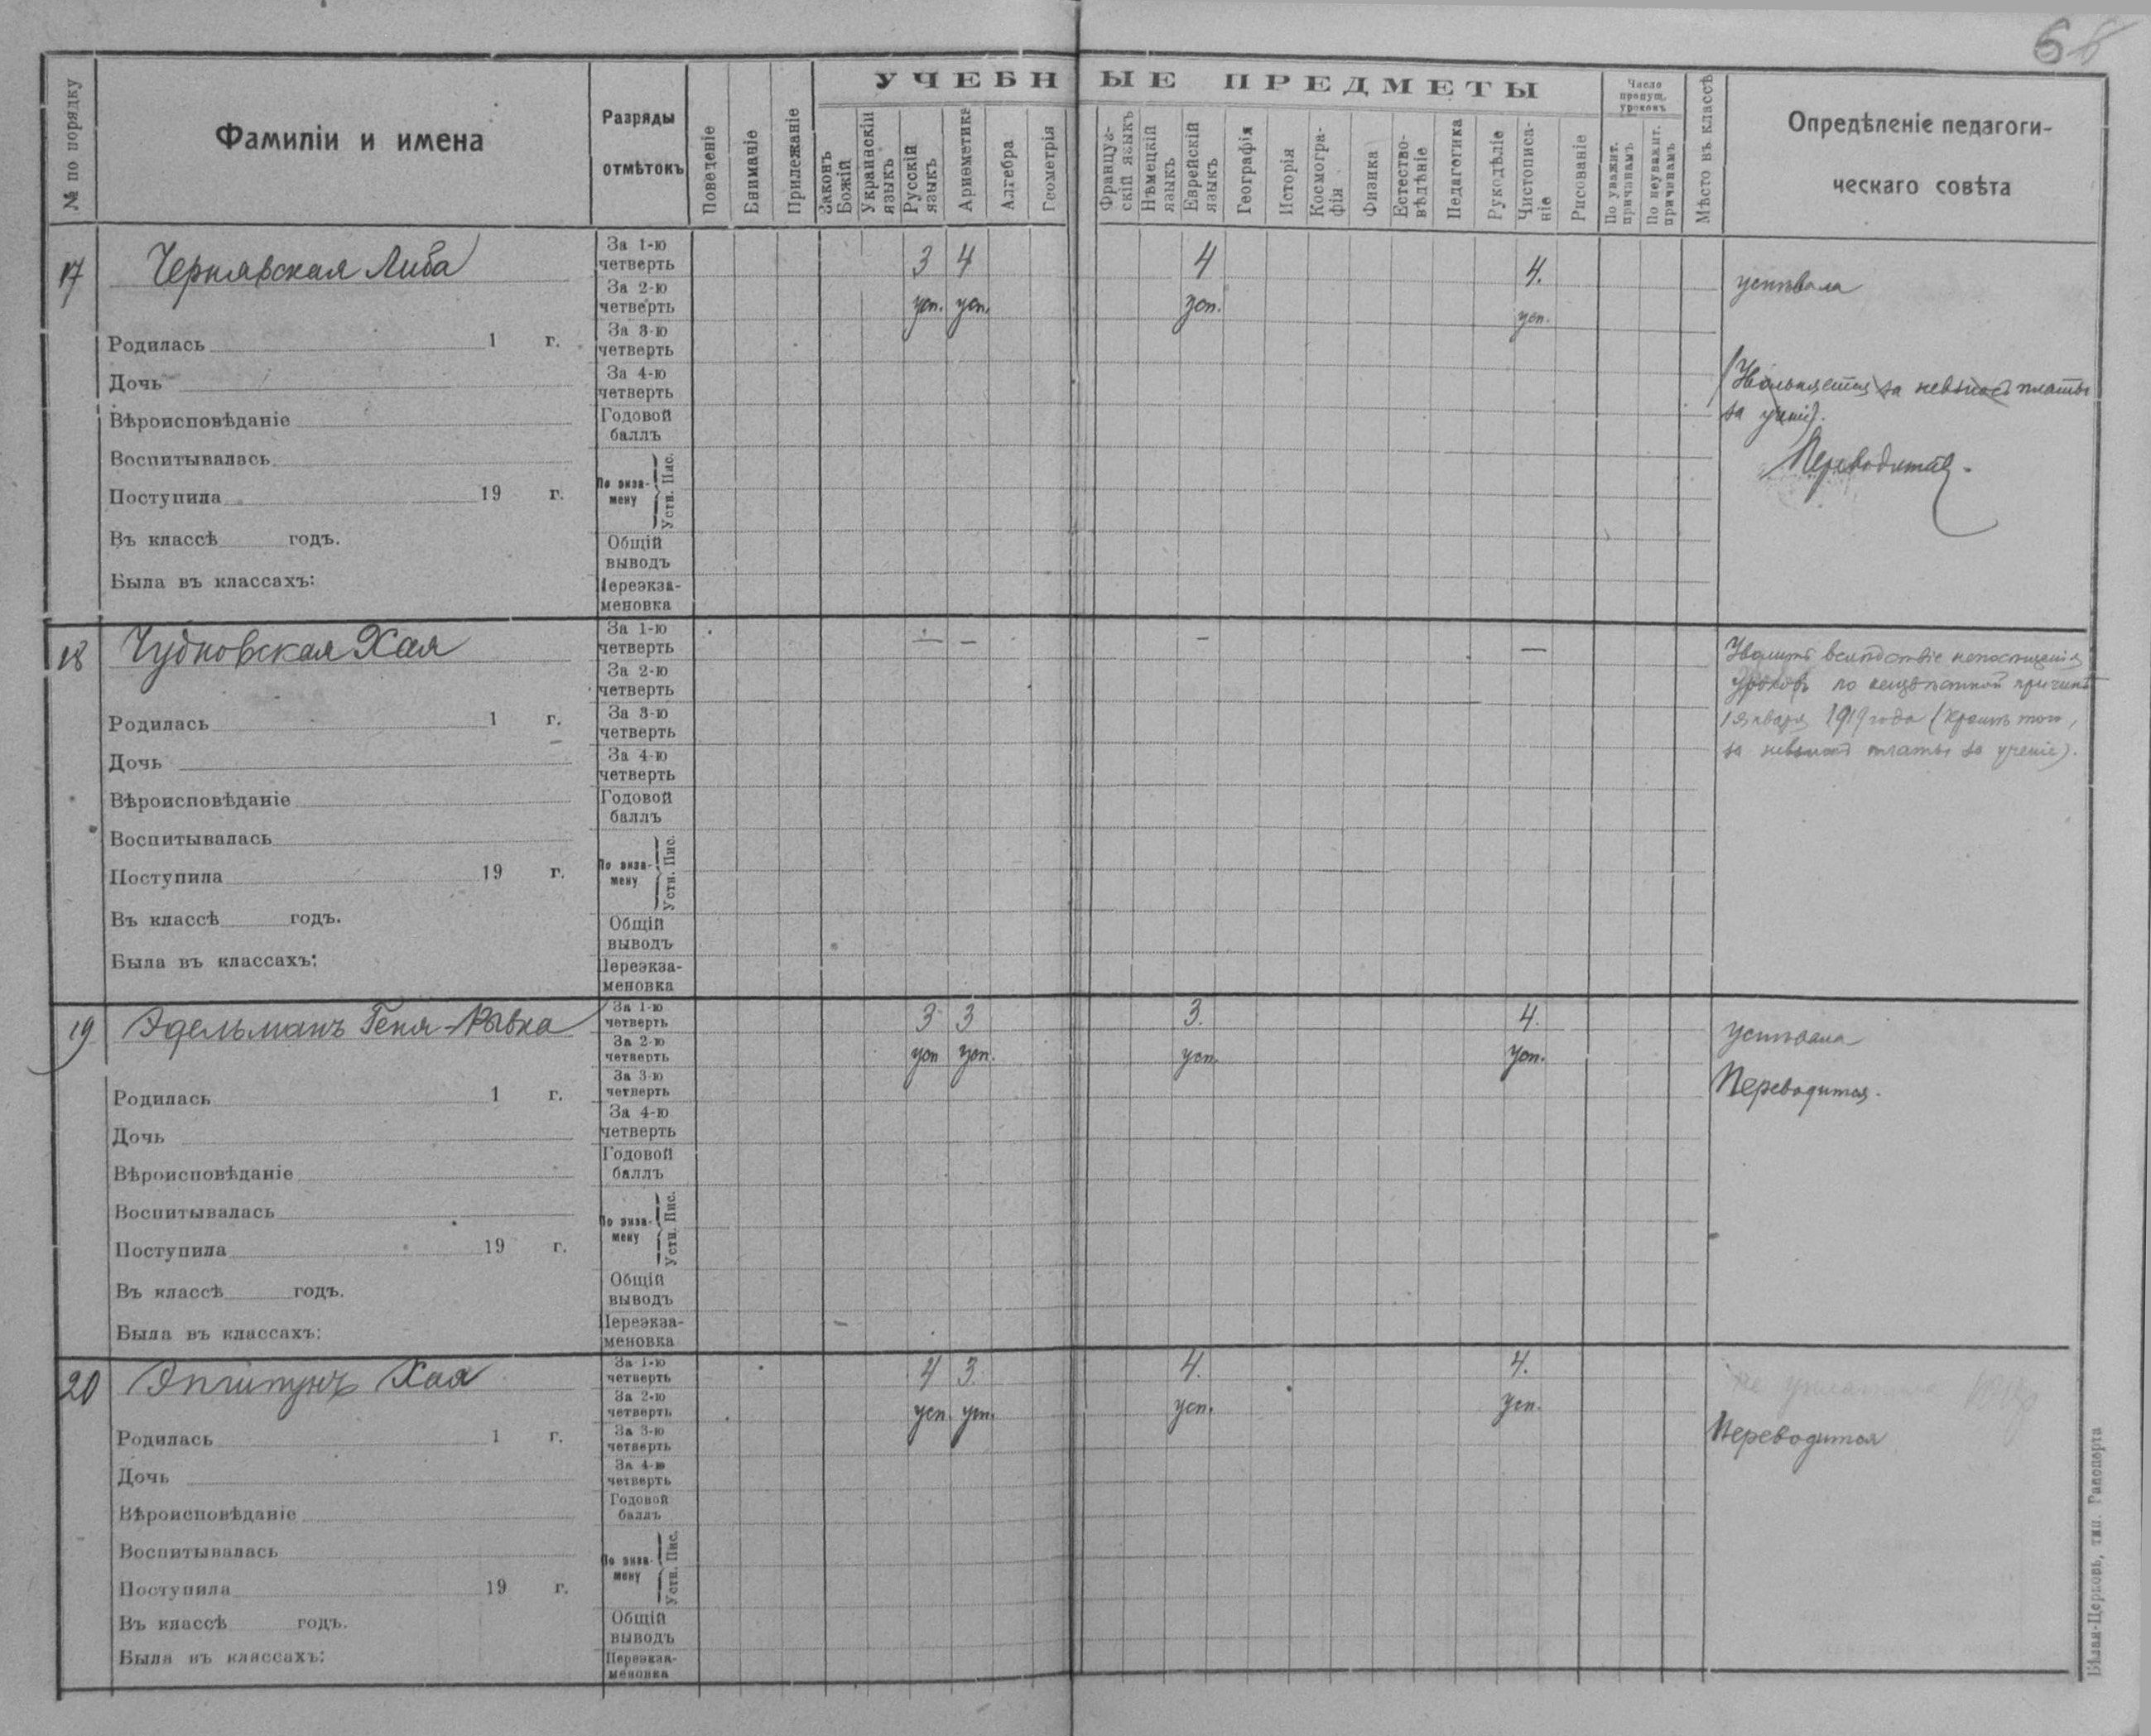 6
УЧЕБНЫЕ ПРЕДМЕТЫ
№ по порядку
Фамиліи и имена
Разряды
отмѣтокъ
Поведеніе
Вниманіе
Прилежаніе
Законъ Божій
Украинскій языкъ
Русскій языкъ
Ариѳметика
Алгебра
Геометрія
Француз-скій языкъ
Нѣмецкій языкъ
Еврейскій языкъ
Географія
Исторія
Космогра-фія
Физика
Естество-вѣдѣніе
Педагогика
Рукодѣліе
Чистописа-ніе
Рисованіе
Число пропущ. уроковъ
По уважит. причинамъ
По неуважит. причинамъ
Мѣсто въ классѣ
Опредѣленіе педагоги-
ческаго совѣта
17 Чернявская Либа
За 1-ю четверть 3 4 4 4.
успѣвала
За 2-ю четверть усп. усп. усп. усп.
За 3-ю четверть
Родилась 1 г.
За 4-ю четверть
Дочь
(Увольняется за невзносъ платы
за ученіе).
Годовой балль
Вѣроисповѣданіе
Переводится.
Воспитывалась
По экза-мену Устн. Пис.
Поступила 19 г.
Въ классѣ годъ.
Общій выводъ
Была въ классахъ:
Переэкза-меновка
18 Чудновская Хая
За 1-ю четверть — — — —
Уволить вслѣдствіе непосѣщенія
уроковъ по неизвѣстной причинѣ
1 января 1919 года (кромѣ того,
за невзносъ платы за ученіе).
За 2-ю четверть
За 3-ю четверть
Родилась 1 г.
За 4-ю четверть
Дочь
Годовой баллъ
Вѣроисповѣданіе
Воспитывалась
По экза-мену Устн. Пис.
Поступила 19 г.
Въ классѣ годъ.
Общій выводъ
Была въ классахъ:
Переэкза-меновка
19 Эдельманъ Геня-Рывка
За 1-ю четверть 3 3 3. 4.
успѣвала
За 2-ю четверть усп усп. усп. усп.
Переводится.
За 3-ю четверть
Родилась 1 г.
За 4-ю четверть
Дочь
Годовой баллъ
Вѣроисповѣданіе
Воспитывалась
По экза-мену Устн. Пис.
Поступила 19 г.
Въ классѣ годъ.
Общій выводъ
Была въ классахъ:
Переэкза-меновка
20 Эпштунъ Хая
За 1-ю четверть 4 3. 4. 4.
не уплатила
За 2-ю четверть усп. усп. усп. усп.
Переводится
За 3-ю четверть
Родилась 1 г.
За 4-ю четверть
Дочь
Годовой баллъ
Вѣроисповѣданіе
Воспитывалась
По экза-мену Устн. Пис.
Поступила 19 г.
Въ классѣ годъ.
Общій выводъ
Была въ классахъ:
Переэкза-меновка
Бѣлая-Церковь, тип. Рапопорта